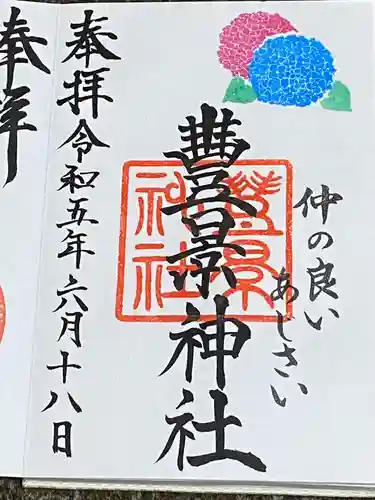 仲の良い
あじさい
豊景神社
豊景
神社
奉拝令和五年六月十八日
奉拝